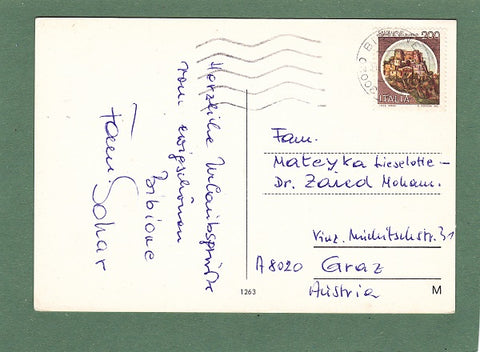 Herzliche Urlaubsgrüße
vom ewigschönen
Bibione
Fam.
200
ITALIA
Fam.
Mateyka Lieselotte -
Dr. Zaied Moham.
Vinz. Muchitschstr. 31
A 8020 Graz
Austria
1263
M